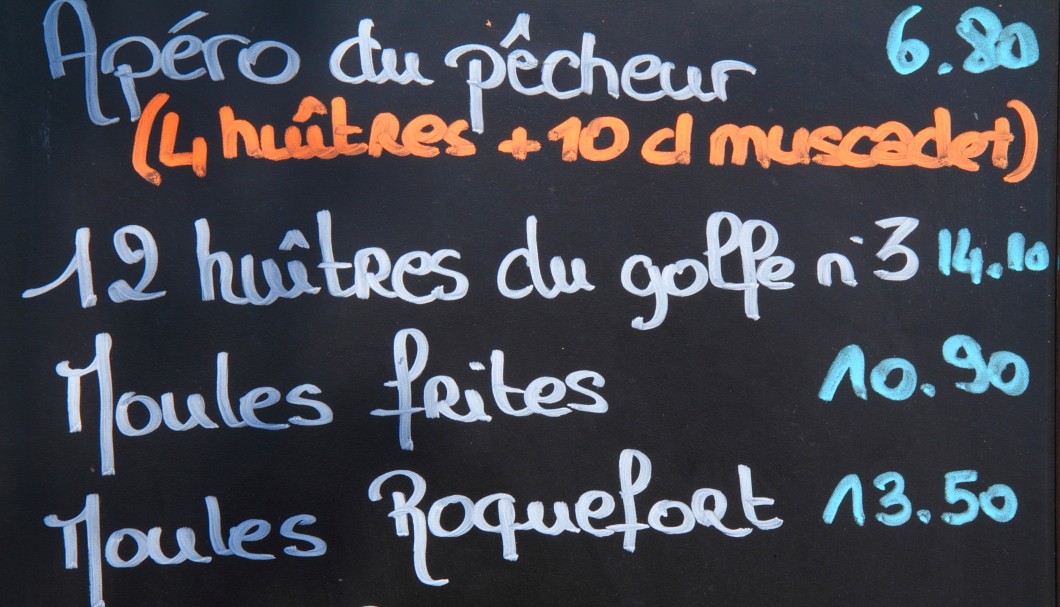 Apéro du pêcheur 6.80
(4 huîtres + 10 d muscadet)
12 huîtres du golfe n°3 14.10
Moules frites 10.90
Moules Roquefort 13.50